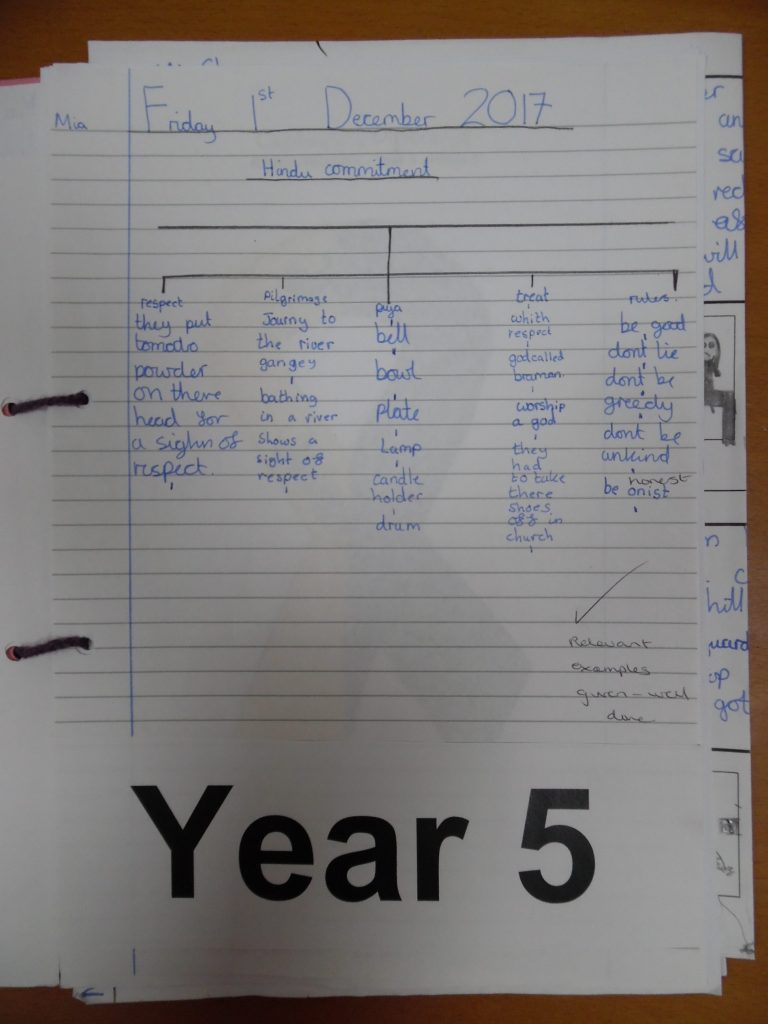 Mia
Friday 1st December 2017
Hindu commitment
respect
they put
tomodo
powder
on there
head for
a sighn of
respect.
Pilgrimage
Journy to
the river
gangey
bathing
in a river
shows a
sight of
respect
puja
bell
bowl
plate
Lamp
candle
holder
drum
treat
whith
respect
godcalled
braman.
worship
a god
they
had
to take
there
shoes
off in
church
rules.
be good
dont lie
dont be
greedy
dont be
unkind
honest
be onist
Relevant
examples
given - well
done
Year 5
an
red
will
hill
up
got